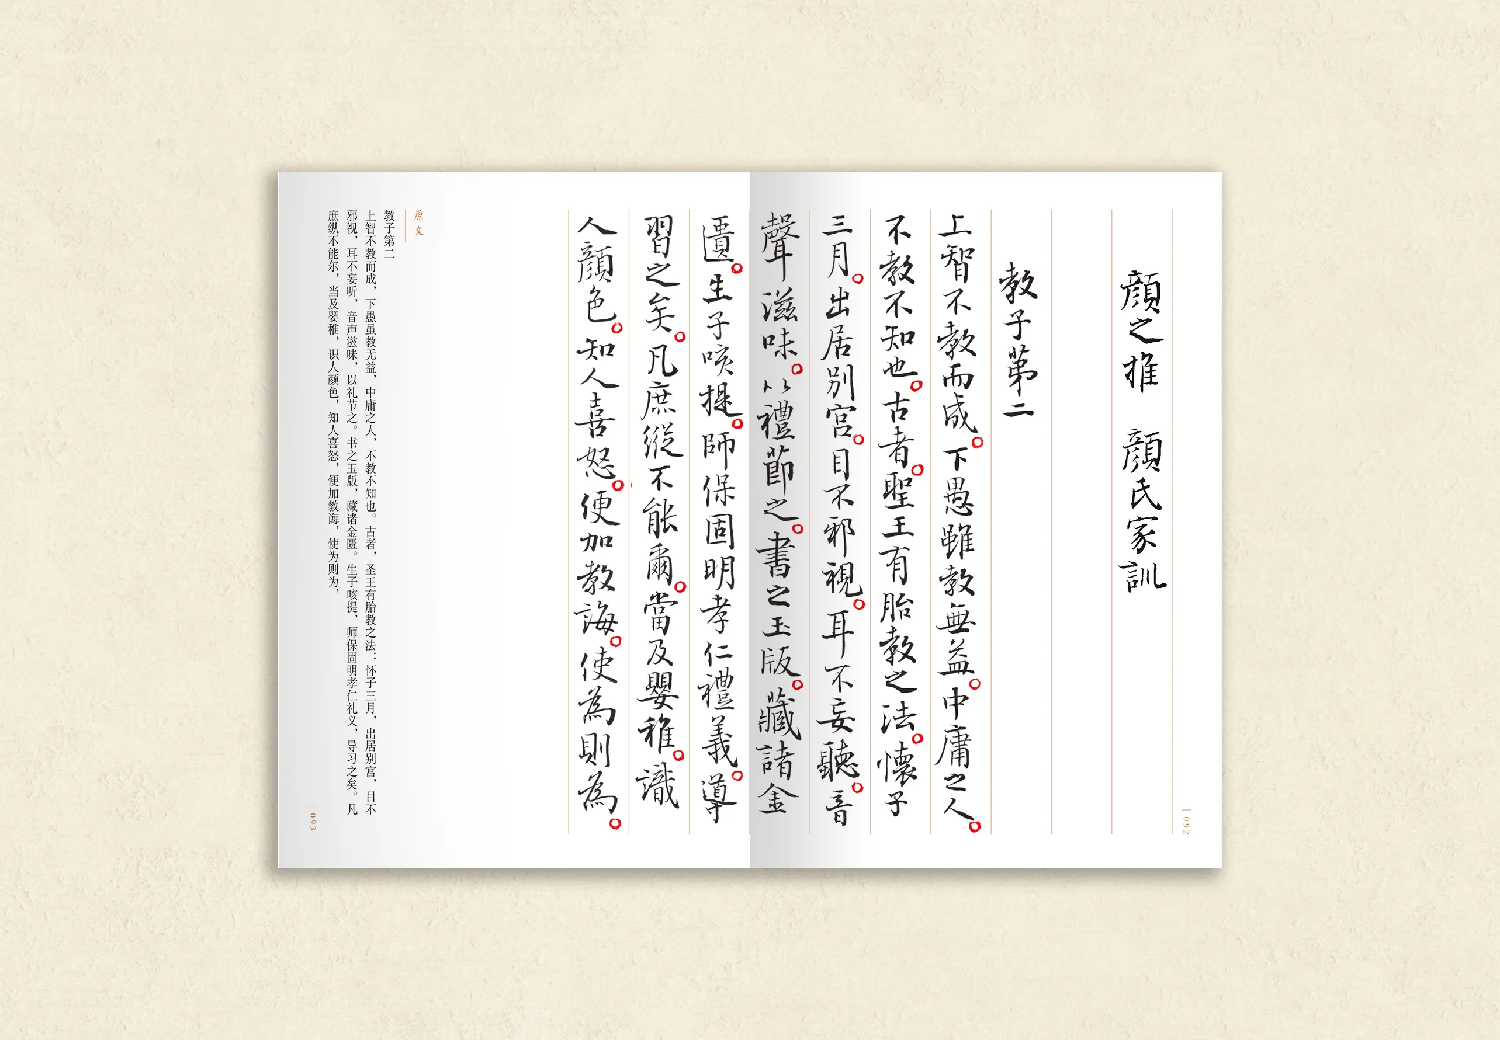 092
顏之推 顏氏家訓
教子第二
上智不教而成。下愚雖教無益。中庸之人。
不教不知也。古者。聖王有胎教之法。懷子
三月。出居別宮。目不邪視。耳不妄聽。音
聲滋味。以禮節之。書之玉版。藏諸金
匱。生子咳提。師保固明孝仁禮義。導
習之矣。凡庶縱不能爾。當及嬰稚。識
人顏色。知人喜怒。便加教誨。使為則為。
原文
教子第二
上智不教而成，下愚虽教无益，中庸之人，不教不知也。古者，圣王有胎教之法：怀子三月，出居别宫，目不
邪视，耳不妄听，音声滋味，以礼节之。书之玉版，藏诸金匮。生子咳提，师保固明孝仁礼义，导习之矣。凡
庶纵不能尔，当及婴稚，识人颜色，知人喜怒，便加教诲，使为则为，
093